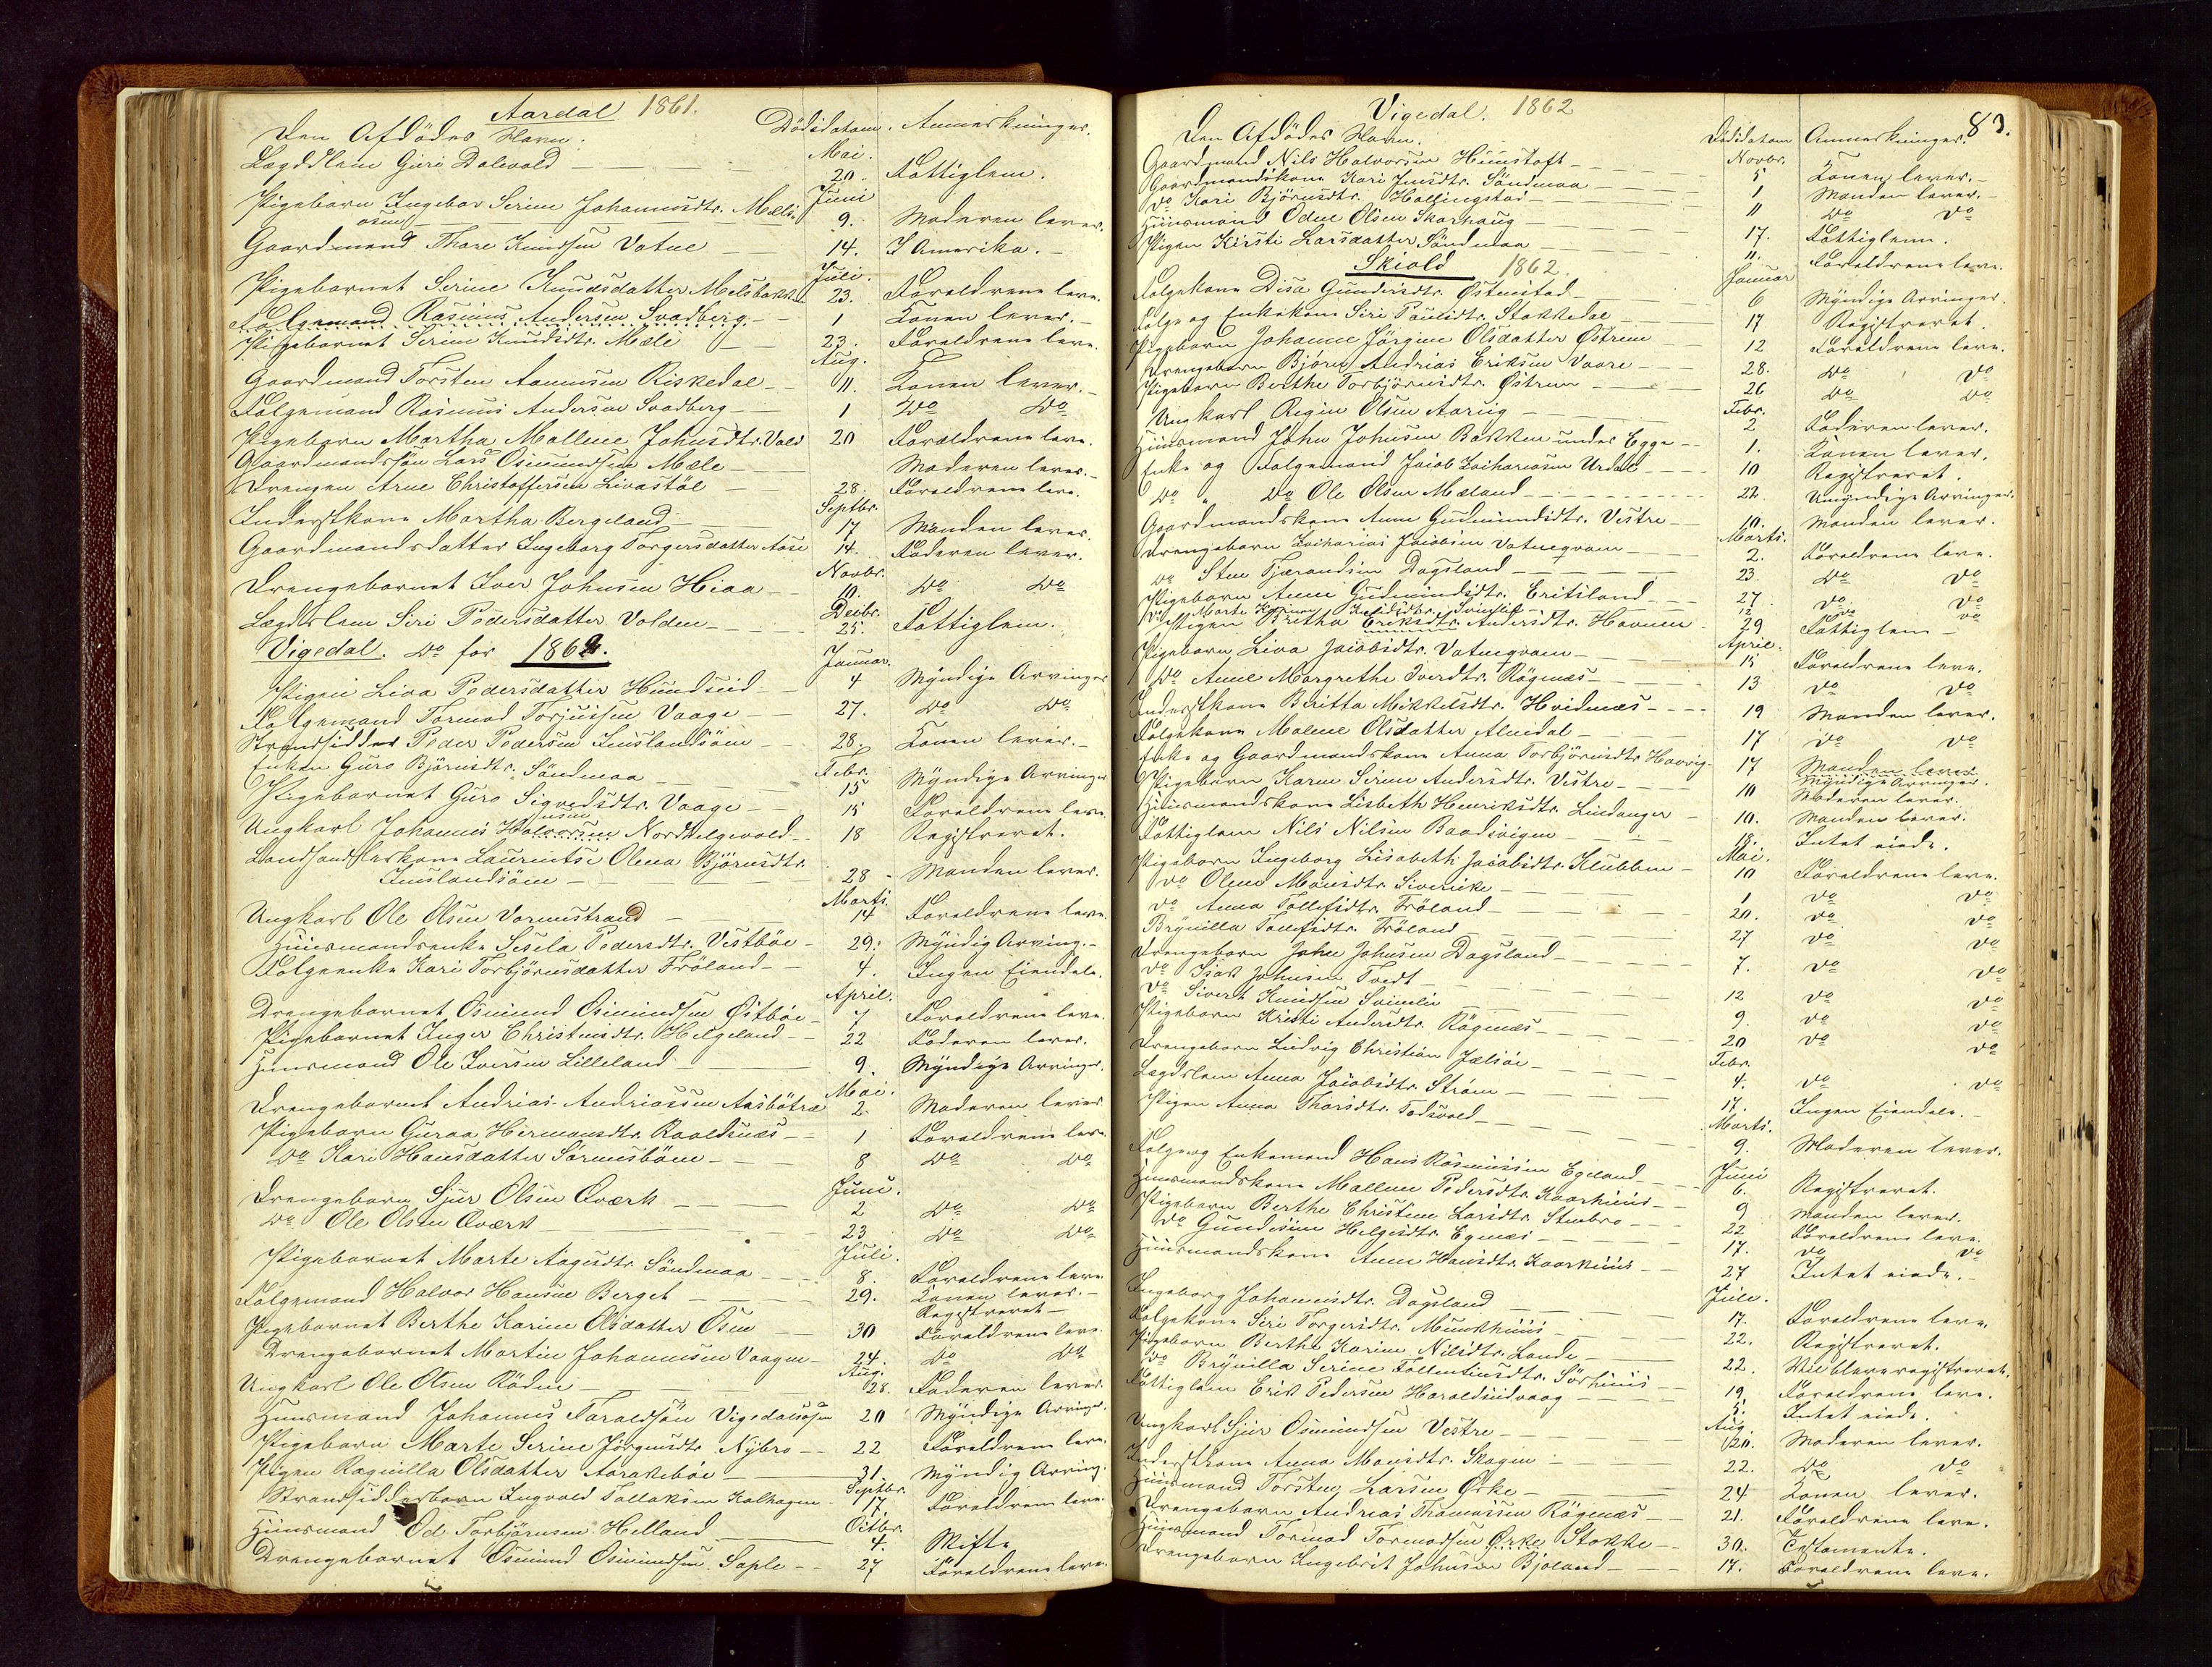 Aardal 1861.
Den Afdødes Navn. Dødsdatum. Anmerkninger.
Mai.
Lægdslem Guri Dalevold 20. Fattiglem.
Juni
Pigebarn Ingebor Serine Johannesdtr. Mæle 9. Moderen lever.
Gaardmand Thore Knudsen Vatne 14. I Amerika.
Juli.
Pigebarnet Serine Knudsdatter Melsbakken 23. Forældrene leve.
Følgemand Rasmus Andersen Svadberg 1 Konen lever.
Pigebarnet Serine Knudsdtr. Mæle 23. Forældrene leve.
Aug.
Gaardmand Torsten Aamundsen Riskedal 11. Konen lever.
Følgemand Rasmus Andersen Svadberg 1 Do Do
Pigebarn Martha Mallene Johnsdtr. Vald 20 Forældrene leve.
Gaardmandssøn Lars Osmundsen Mæle Moderen lever.
Drengen Arne Christoffersen Livastøl 28. Forældrene leve.
Septbr.
Inderstkone Martha Bergeland 17 Manden lever.
Gaardmandsdatter Ingeborg Torgersdatter Aase 14. Faderen lever.
Novbr.
Drengebarnet Iver Johnsen Hiaa 10. Do Do
Decbr.
Lægdslem Siri Pedersdatter Valden 25. Fattiglem.
Vigedal. Do for 1862.
Januar.
Pigen Liva Pedersdatter Hundseid 4 Myndige Arvinger
Følgemand Tormod Torjussen Vaage 27. Do Do
Strandsidder Peder Pedersen Imslandsøen 28. Konen lever.
Febr.
Enken Guro Bjørnsdtr. Søndenaa 15 Myndige Arvinger
Pigebarnet Guro Sigvedsdtr. Vaage 15 Forældrene leve.
Ungkarl Johannes Halvorsen Nordhelgevold 18 Registreret.
Laurentse Olena Bjørnsdtr.
Imslandsøen 28 Manden lever.
Marts.
Ungkarl Ole Olsen Vormestrand 14 Forældrene leve.
Huusmandsenke Sesela Pedersdtr. Vestbøe 29. Myndig Arving.
Følgeenke Kari Torbjørnsdatter Frøland 4. Ingen Eiendele.
April.
Drengebarnet Osmund Osmundsen Østbøe 7 Forældrene leve.
Pigebarnet Inger Christensdtr. Helgeland 22 Faderen lever.
Huusmand Ole Iversen Lilleland 9. Myndige Arvinger.
Mai.
Drengebarnet Andreas Andreassen Aasbøtræ 2. Moderen lever
Pigebarn Guroa Hermansdtr. Rooldsnæs 1 Forældrene leve.
Do Kari Hansdatter Sørensbøen 8 Do Do
Juni.
Drengebarn Sjur Olsen Qværk 2 Do Do
Do Ole Olsen Qværk 23 Do Do
Juli.
Pigebarnet Marte Aagesdtr. Søndenaa 8. Forældrene leve.
Følgemand Halvor Hansen Berget 29. Konen lever.
Registreret
Pigebarnet Berthe Karine Olsdatter Osen 30 Forældrene leve.
Drengebarnet Martin Johannesen Vaagen 24. Do Do
Aug.
Ungkarl Ole Olsen Rødne 28. Faderen lever.
Huusmand Johannes Taraldsen Vigedalsosen 20 Myndige Arvinger.
Pigebarn Marte Serine Jørgensdtr. Nybro 22 Forældrene leve.
Pigen Ragnilla Olsdatter Aarakebøe 31 Myndig Arving.
Septbr.
Strandsidderbarn Ingvald Tollaksen Kalhagen 17. Forældrene leve.
Octbr.
Huusmand Od. Torbjørnsen Helland 4. Skifte
Drengebarnet Osmund Osmundsen Sople 27 Forældrene leve.
Vigedal. 1862
83.
Den Afdødes Navn. Dødsdatum Anmerkninger.
Novbr.
Gaardmand Nils Halvorsen Hunstoft 5 Konen lever.
Gaardmandskone Kari Jensdtr. Søndenaa 1 Manden lever.
Do Kari Bjørnsdtr. Hallingstad 11 Do Do
Huusmand Odne Olsen Skarhaug 17. Fattiglem.
Pigen Kirsti Larsdatter Søndenaa 11. Forældrene leve.
Skiold 1862.
Januar
Følgekone Disa Gundersdtr. Østenstad 6 Myndige Arvinger.
Følge og Enkekone Siri Paulsdtr. Stakkedal 17 Registreret.
Pigebarn Johanne Jørgine Olsdatter Østrem 12 Forældrene leve.
Drengebarn Bjørn Andreas Eriksen Vaare 28. Do Do
Pigebarn Berthe Torbjørnsdtr. Østrem 26 Do Do
Febr.
Ungkarl Regin Olsen Aarvig 2 Faderen lever.
Huusmand John Johnsen Bakken under Egge 1. Konen lever.
Enke og Følgemand Jacob Zachariasen Urdal 10 Registreret.
Do " Do Ole Olsen Mæland 22. Umyndige Arvinger.
Gaardmandskone Anne Gudmundsdtr. Vestre 10. Manden lever.
Marts.
Drengebarn Zacharias Jacobsen Vatnegram 2. Forældrene leve.
Do Sten Tjærandsen Dagsland 23. Do Do
Pigebarn Anne Gudmundsdtr. Eritsland 27 Do Do
Do Marte Karine 12 Do Do
Pigen Bretha Eriksdtr. Andersdtr. Havnen 29 Fattiglem
April.
Pigebarn Liva Jacobsdtr. Vatnegram 15 Forældrene leve.
Do Anne Margrethe Iversdtr. Røgenæs 13 Do Do
Inderstkone Beritta Mikkelsdtr. Hvidenæs 19 Manden lever.
Følgekone Malene Olsdatter Alendal 17 Do Do
Enke og Gaardmandskone Anna Torbjørnsdtr. Haavig 17 Manden lever
Myndige Arvinger.
Pigebarn Karen Serine Andersdtr. Vestre 10 Moderen lever.
Huusmandskone Lisbeth Henriksdtr. Lindanger 10. Manden lever.
Fattiglem Nils Nilsen Baadsvigen 18. Intet eiede.
Mai.
Pigebarn Ingeborg Lisabeth Jacobsdtr. Klubben 10 Forældrene leve.
Do Olene Monsdtr. Siverike 1 Do Do
Do Anna Tollefsdtr. Frøland 20. Do Do
Brynilla Tollefsdtr. Frøland 27 Do Do
Drengebarn John Johnsen Dagsland 7. Do Do
Do Isak Johnsen Tvedt 12 Do Do
Do Sivert Knudsen Svinelie 9. Do Do
Pigebarn Kristi Andersdtr. Røgenæs 20 Do Do
Febr.
Drengebarn Ludvig Christian Jælsøe 4. Do Do
Lægdslem Anna Jacobsdtr. Strøm 17. Ingen Eiendele.
Marts.
Pigen Anna Thorsdtr. Todsvold 9. Moderen lever.
Juni
Følge og Enkemand Hans Rasmussen Egeland 6. Registreret.
Huusmandskone Mallene Pedersdtr. Kaarhuus 9 Manden lever.
Pigebarn Berthe Christine Larsdtr. Stenbro 22 Forældrene leve.
Do Gundesine Helgesdtr. Egenæs 17. Do Do
Huusmandskone Anne Hansdtr. Kaarhuus 27 Intet eiede.
Juli.
Ingeborg Johannesdtr. Dagsland 17. Forældrene leve.
Følgekone Siri Torgersdtr. Munkhuus 22. Registreret.
Pigebarn Berthe Karine Nilsdtr. Lande 22.
Do Brynilla Serine Tollentinsdtr. Sørhuus 19. Forældrene leve.
Fattiglem Erik Pedersen Haraldseidvaag 5. Intet eiede.
Aug.
Ungkarl Sjur Osmundsen Vestre 20. Moderen lever.
Inderstkone Anna Monsdtr. Skagen 22. Do Do
Huusmand Torsten Larsen Ørke 24 Konen lever.
Drengebarn Andreas Thomassen Røgenæs 21. Forældrene leve.
Huusmand Tormod Tormodsen Ørke Stakke 30. Testamente.
Drengebarn Ingebret Johnsen Bjoland 17. Forældrene leve.